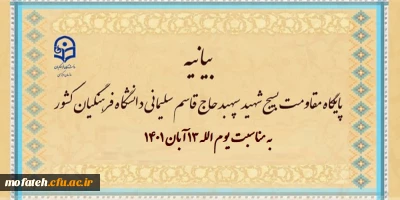 بیانیه
پایگاه مقاومت بسیج شهید سپهبد حاج قاسم سلیمانی دانشگاه فرهنگیان کشور
به مناسبت یوم الله ۱۳ آبان ۱۴۰۱
mofateh.cfu.ac.ir